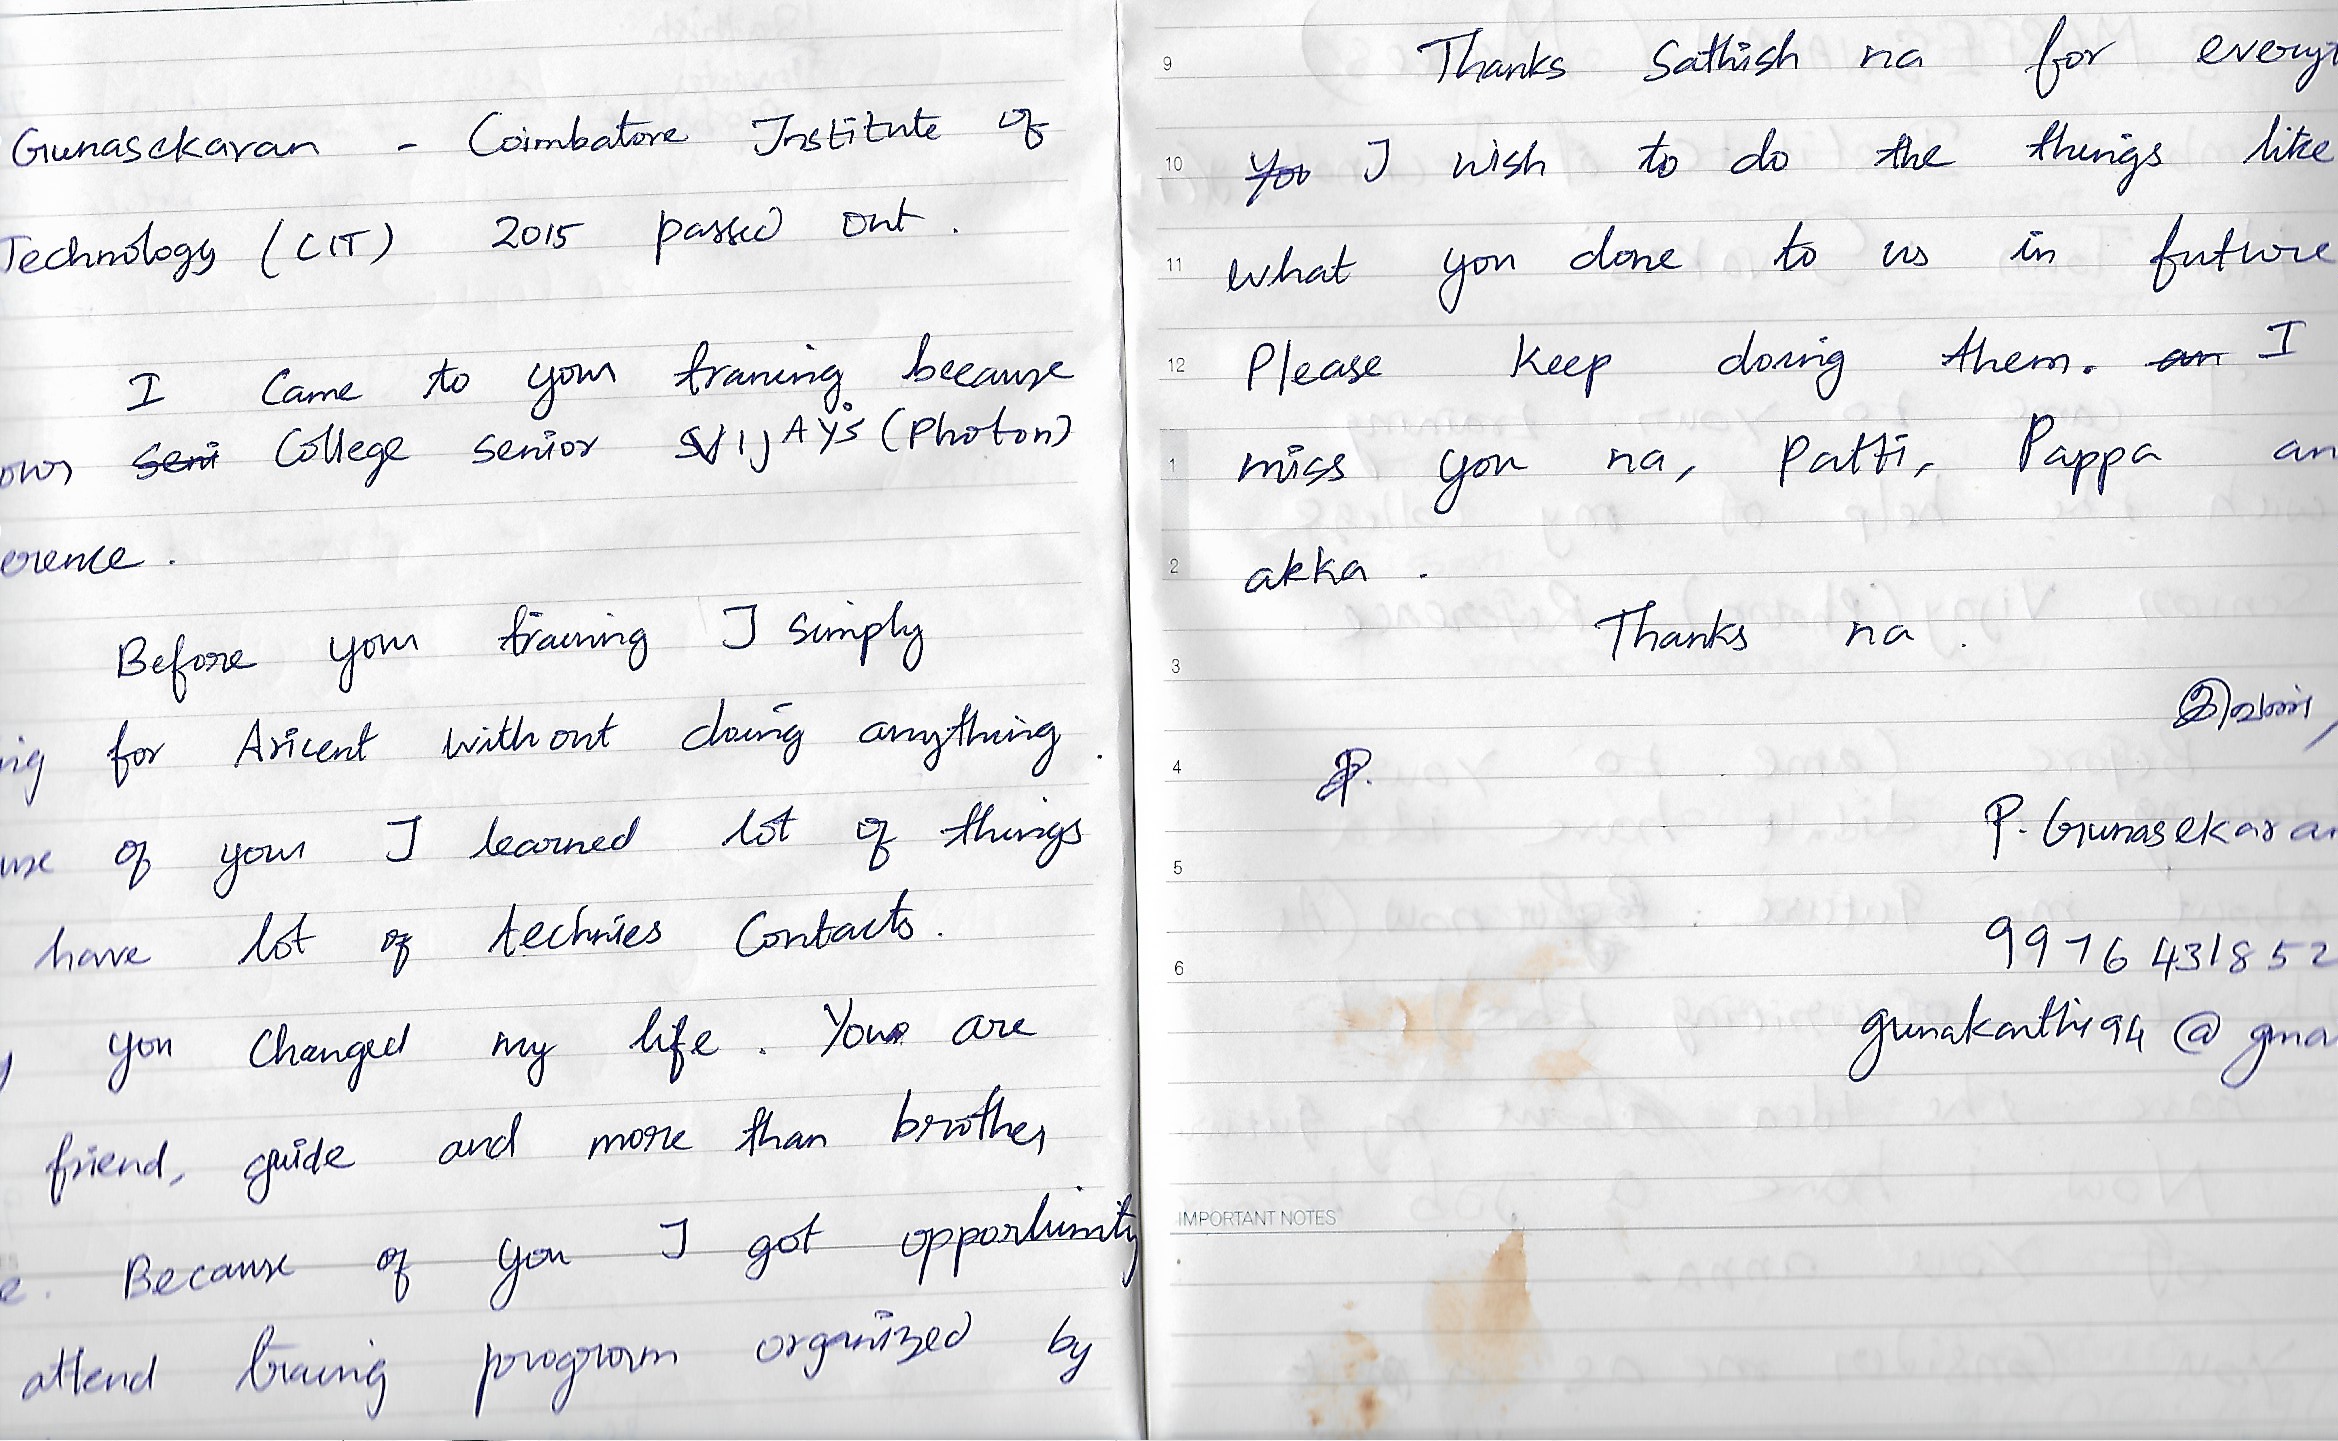 Gunasekaran - Coimbatore Institute of
Technology (CIT) 2015 passed out.
I Came to your traning because
College senior VIJAY's (Photon)
erence.
Before your training I simply
ng for Aricent without doing anything.
use of your I learned lot of things
have lot of technies Contacts.
you Changed my life. You are
friend, guide and more than brother
e. Because of you I got opportunity
attend traing program organized by
9 Thanks Sathish na for everyt
10 I wish to do the things like
11 what you done to us in future
12 Please keep doing them. I
1 miss you na, Patti, Pappa an
2 akka.
Thanks na.
3
இவன்,
4 P.
P. Gunasekaran
5
9976431852
6
gunakanthi94@gma
IMPORTANT NOTES